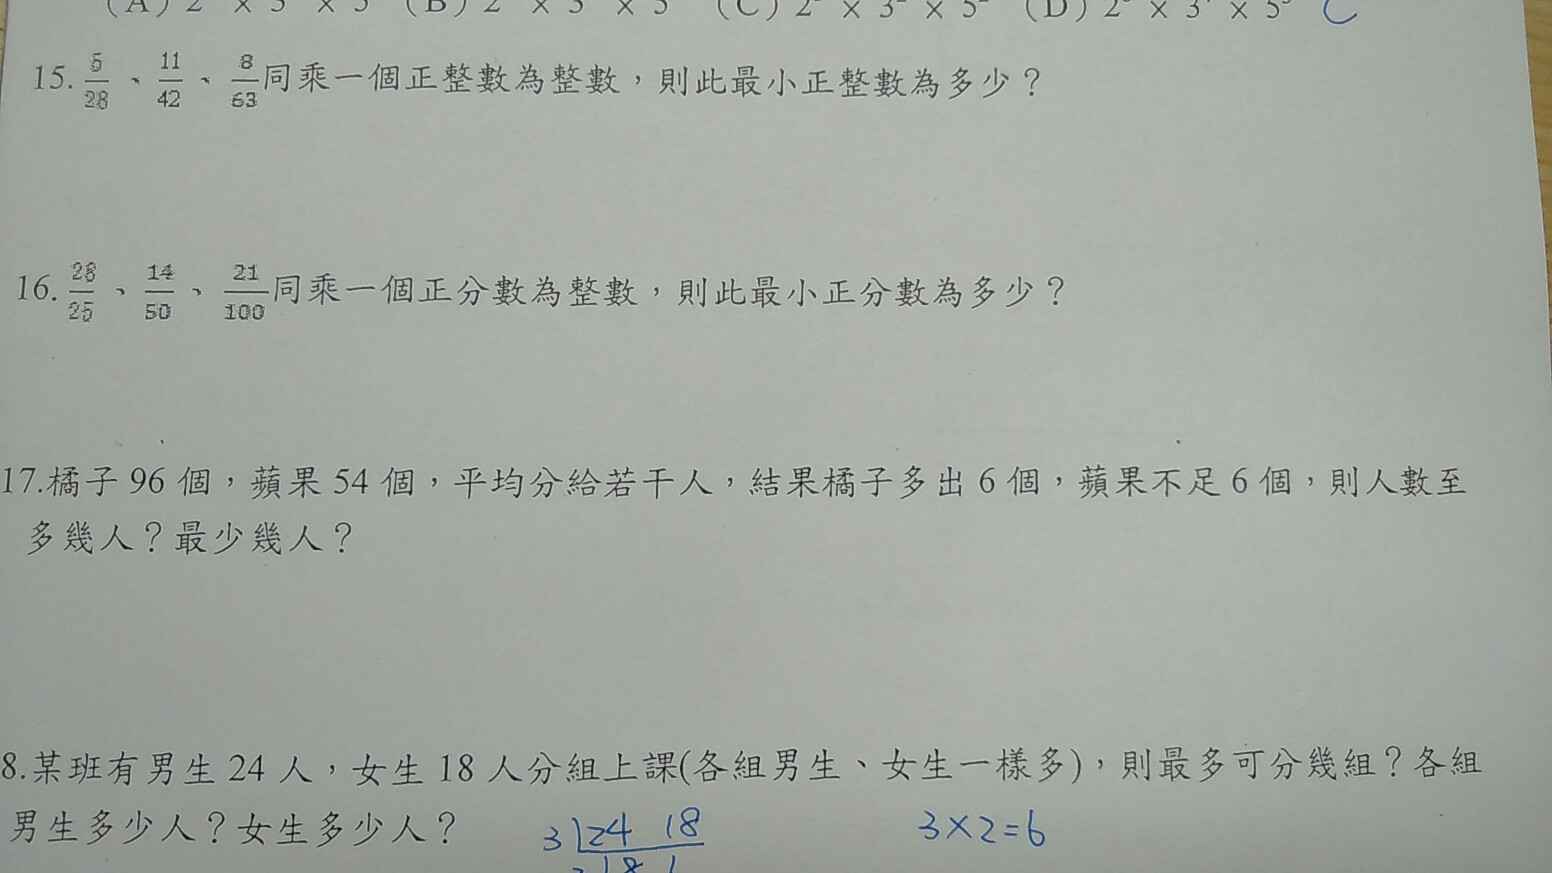 (A) 2 × 3 × 5 (B) 2 × 3 × 5 (C) 2 × 3 × 5 (D) 2 × 3 × 5 C
15. 5/28、11/42、8/63同乘一個正整數為整數，則此最小正整數為多少？
16. 28/25、14/50、21/100同乘一個正分數為整數，則此最小正分數為多少？
17.橘子 96 個，蘋果 54 個，平均分給若干人，結果橘子多出 6 個，蘋果不足 6 個，則人數至
多幾人？最少幾人？
8.某班有男生 24 人，女生 18 人分組上課(各組男生、女生一樣多)，則最多可分幾組？各組
男生多少人？女生多少人？
3 24 18 3×2=6